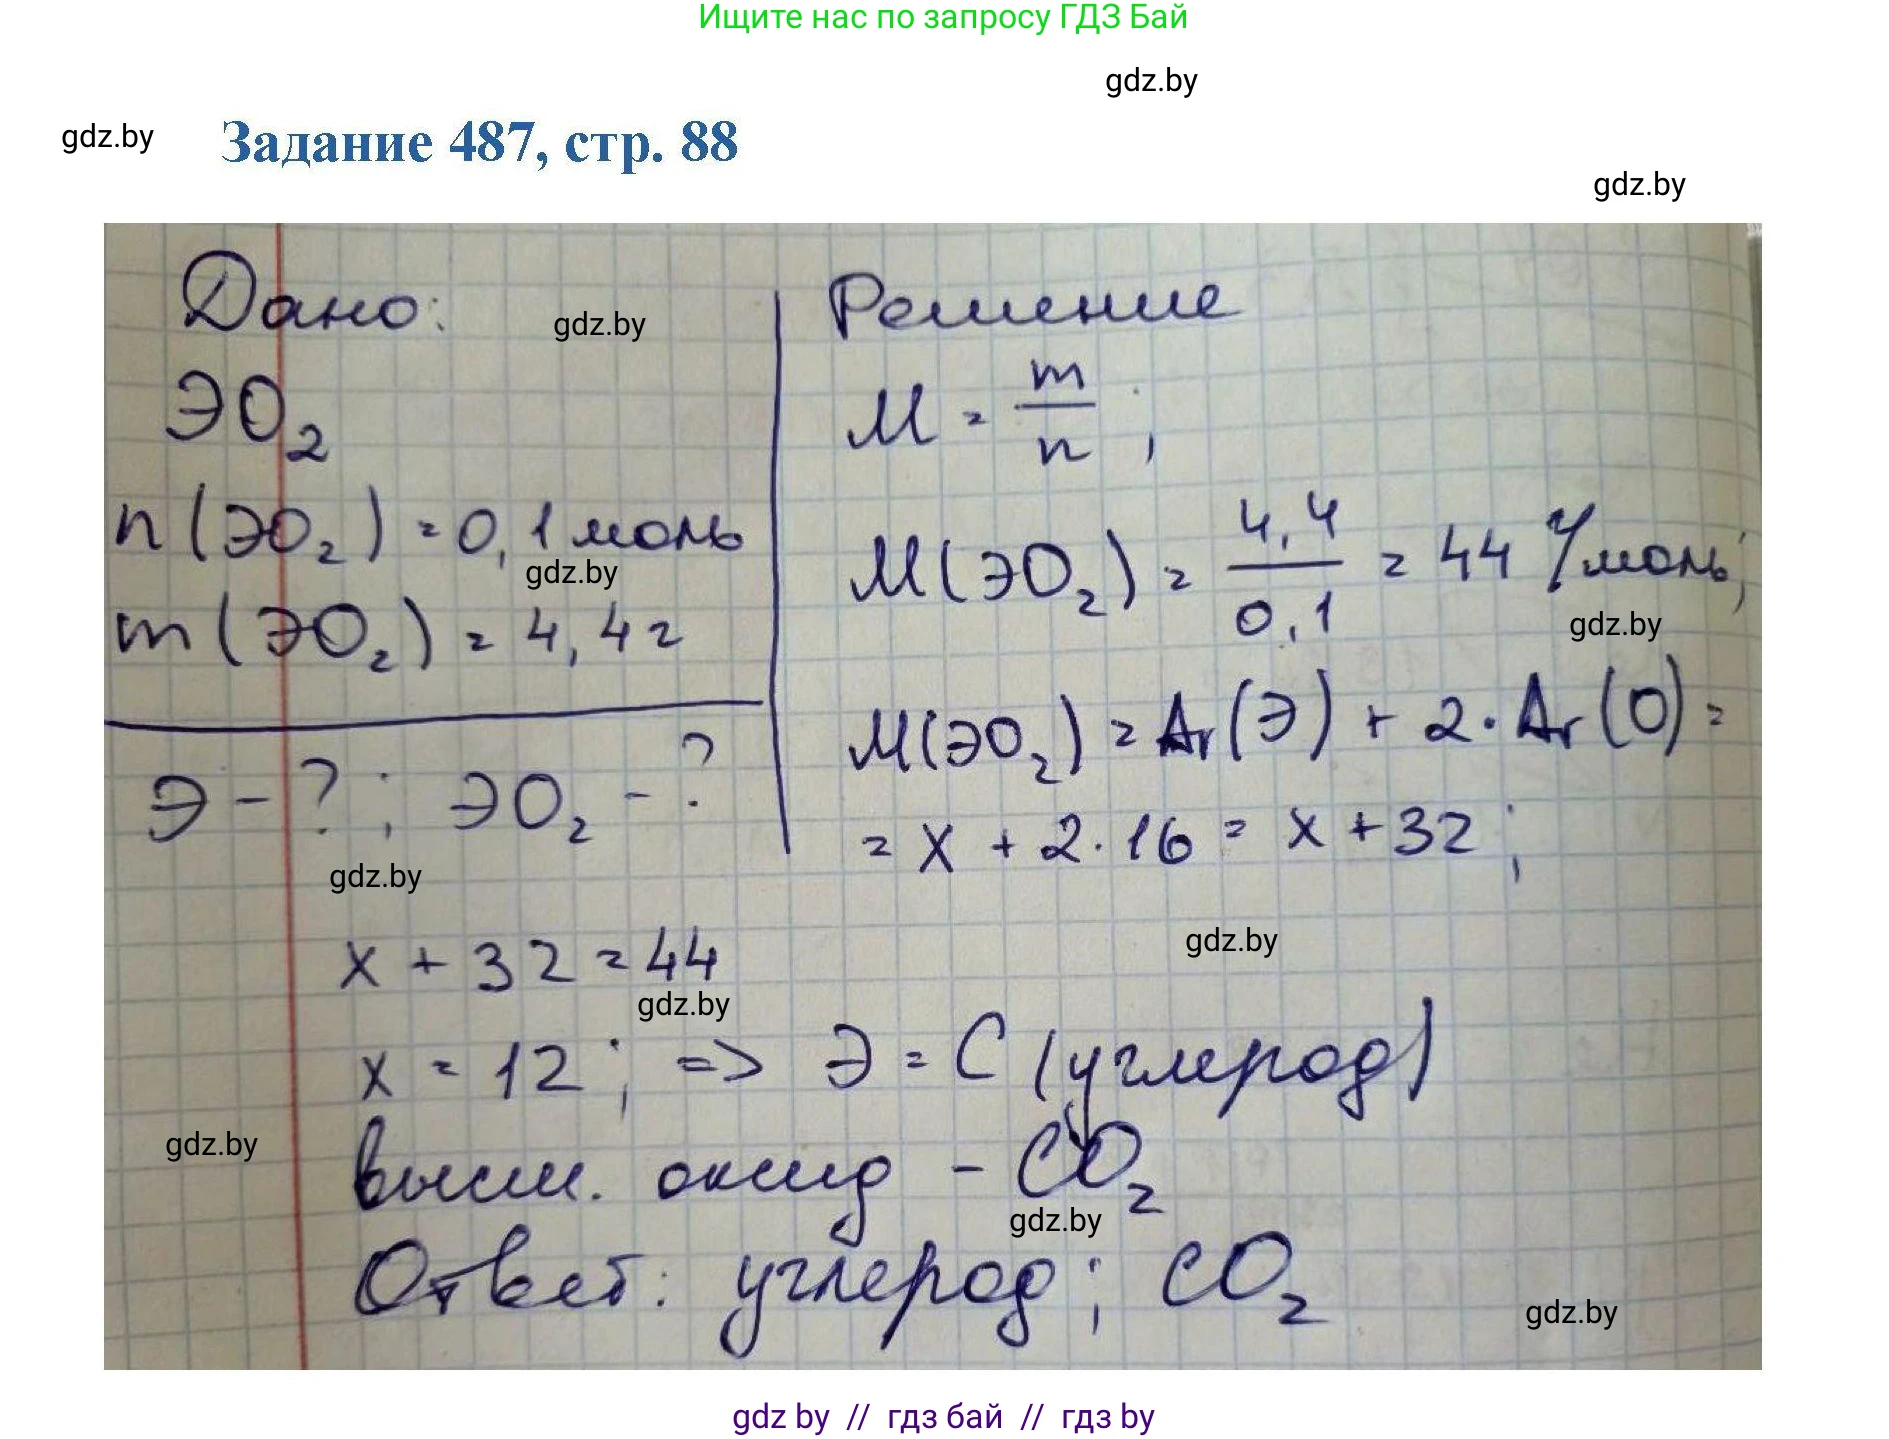 Ищите нас по запросу ГДЗ Бай
gdz.by
gdz.by
Задание 487, стр. 88
gdz.by
Дано:
ЭО₂
n(ЭО₂) = 0,1 моль
m(ЭО₂) = 4,4 г
Э - ?; ЭО₂ - ?
gdz.by
gdz.by
gdz.by
Решение
M = m/n;
M(ЭО₂) = 4,4/0,1 = 44 г/моль;
gdz.by
M(ЭО₂) = Ar(Э) + 2·Ar(О) =
= x + 2·16 = x + 32;
gdz.by
x + 32 = 44
gdz.by
x = 12; => Э = C (углерод)
gdz.by
высш. оксид - CO₂
gdz.by
Ответ: углерод; CO₂
gdz.by
gdz by // гдз бай // гдз by